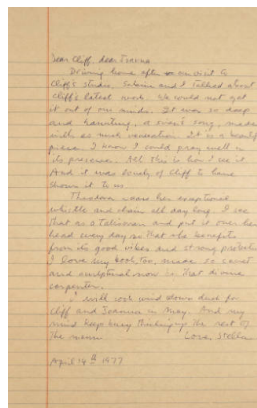 Dear Cliff, dear Joanna
Driving home after our visit to
Cliff's studio, Sabina and I talked about
Cliff's latest work. We could not get
it out of our minds. It was so deep
and haunting, a swan's song, made
with so much veneration. It is a beautiful
piece. I know I could pray well in
its presence. All this is how I see it.
And it was lovely of Cliff to have
shown it to us.
Theodora wears her exceptional
whistle and chain all day long. I see
that as a talisman and put it over her
head every day so that she benefits
from its good vibes and strong probably
I love my book, too, made so
and exceptional now is that divine
carpenter.
I will cook wind down duck for
Cliff and Joanna in May. And my
mind keeps busy thinking up the rest of
the menu. Love,
April 14th 1977